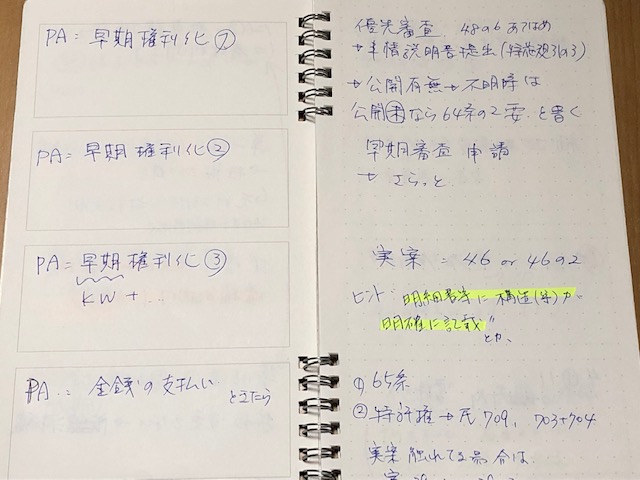 PA=早期権利化①
PA=早期権利化②
PA=早期権利化③
KW+…
PA:金銭の支払い
と言えたら
優先審査. 48の6 あてはめ
→事情説明書提出(特施規31の3)
→公開有無→不明時は
公開困なら64条の2要.と書く
早期審査申請
→さらっと
実案=46 or 46の2
ヒント" 明細書等に構造(等)が
明確に記載"
とか、
①65条
②特許権→民709、703+704
実案 触れてる場合は、